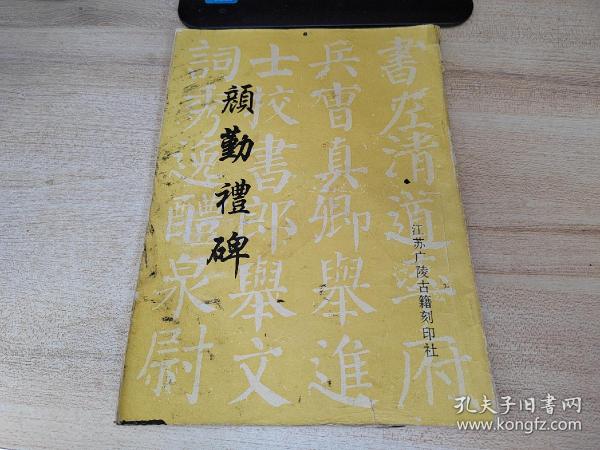 顔勤禮碑
江苏广陵古籍刻印社
書左清道率府
兵曹真卿舉進
士校書郎舉文
詞秀逸醴泉尉
孔夫子旧书网
www.kongfz.com